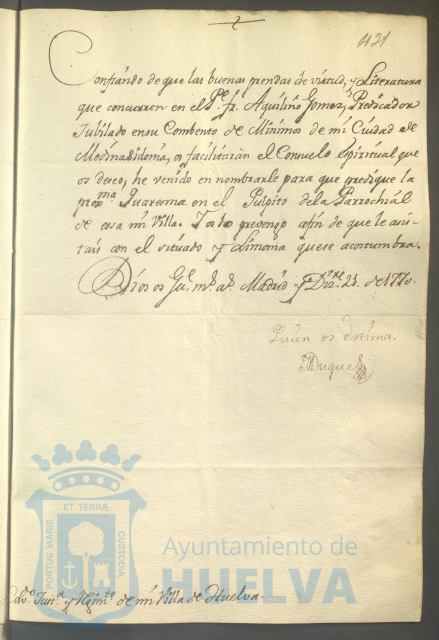 421
Confiando de que las buenas prendas de virtud, y Literatura
que concurren en el Pe. fr. Aquilino Gomez, Predicador
Jubilado en su Combento de Minimos de mi Ciudad de
Medinasidonia, os facilitaràn el Consuelo Espiritual que
os deseo, he venido en nombrarle para que predique la
proxma. Quaresma en el Pulpito de la Parrochial
de essa mi Villa. Y os lo prevengo afin de que le asis-
tais con el situado y Limosna que se acostumbra.
Dios os Gue. ms. as. Madrid y Dizre. 21. de 1770.
Quien os estima.
El Duque
PORTUS MARIS
ET TERRÆ
CUSTODIA
Ayuntamiento de
HUELVA
Cono. Justa. y Regimto. de mi Villa de Huelva.